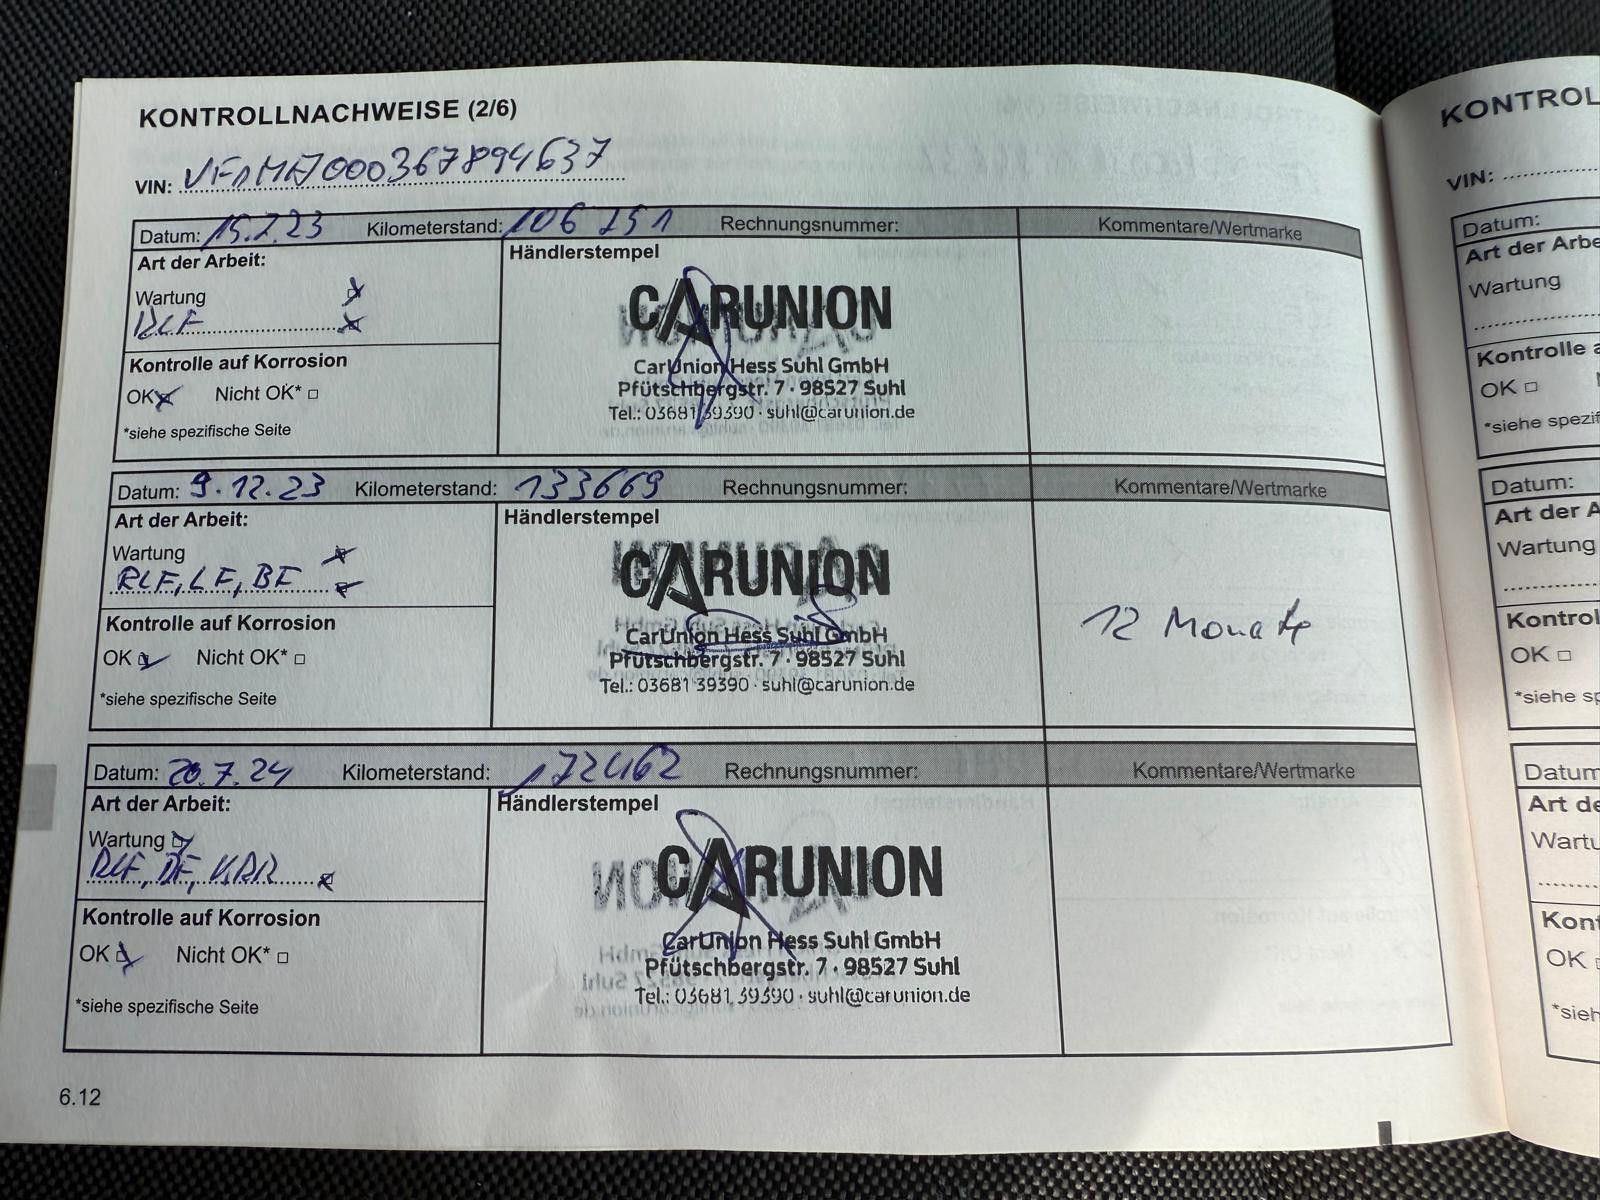 KONTROLLNACHWEISE (2/6)
VIN: VF1MA000367894637
Datum: 15.2.23 Kilometerstand: 106 251 Rechnungsnummer: Kommentare/Wertmarke
Art der Arbeit:
Wartung
RLF
Kontrolle auf Korrosion
OK Nicht OK*
*siehe spezifische Seite
Händlerstempel
CARUNION
CarUnion Hess Suhl GmbH
Pfütschbergstr. 7 · 98527 Suhl
Tel.: 03681 39390 · suhl@carunion.de
Datum: 9.12.23 Kilometerstand: 133669 Rechnungsnummer: Kommentare/Wertmarke
Art der Arbeit:
Wartung
RLF, LF, BF
Kontrolle auf Korrosion
OK Nicht OK*
*siehe spezifische Seite
Händlerstempel
CARUNION
CarUnion Hess Suhl GmbH
Pfütschbergstr. 7 · 98527 Suhl
Tel.: 03681 39390 · suhl@carunion.de
12 Monate
Datum: 20.7.24 Kilometerstand: 172462 Rechnungsnummer: Kommentare/Wertmarke
Art der Arbeit:
Wartung
RLF,
Kontrolle auf Korrosion
OK Nicht OK*
*siehe spezifische Seite
Händlerstempel
CARUNION
CarUnion Hess Suhl GmbH
Pfütschbergstr. 7 · 98527 Suhl
Tel.: 03681 39390 · suhl@carunion.de
6.12
KONTROL
VIN:
Datum:
Art der Arbe
Wartung
Kontrolle a
OK
*siehe spezif
Datum:
Art der A
Wartung
Kontrol
OK
*siehe sp
Datum
Art de
Wartu
Kont
OK
*sieh